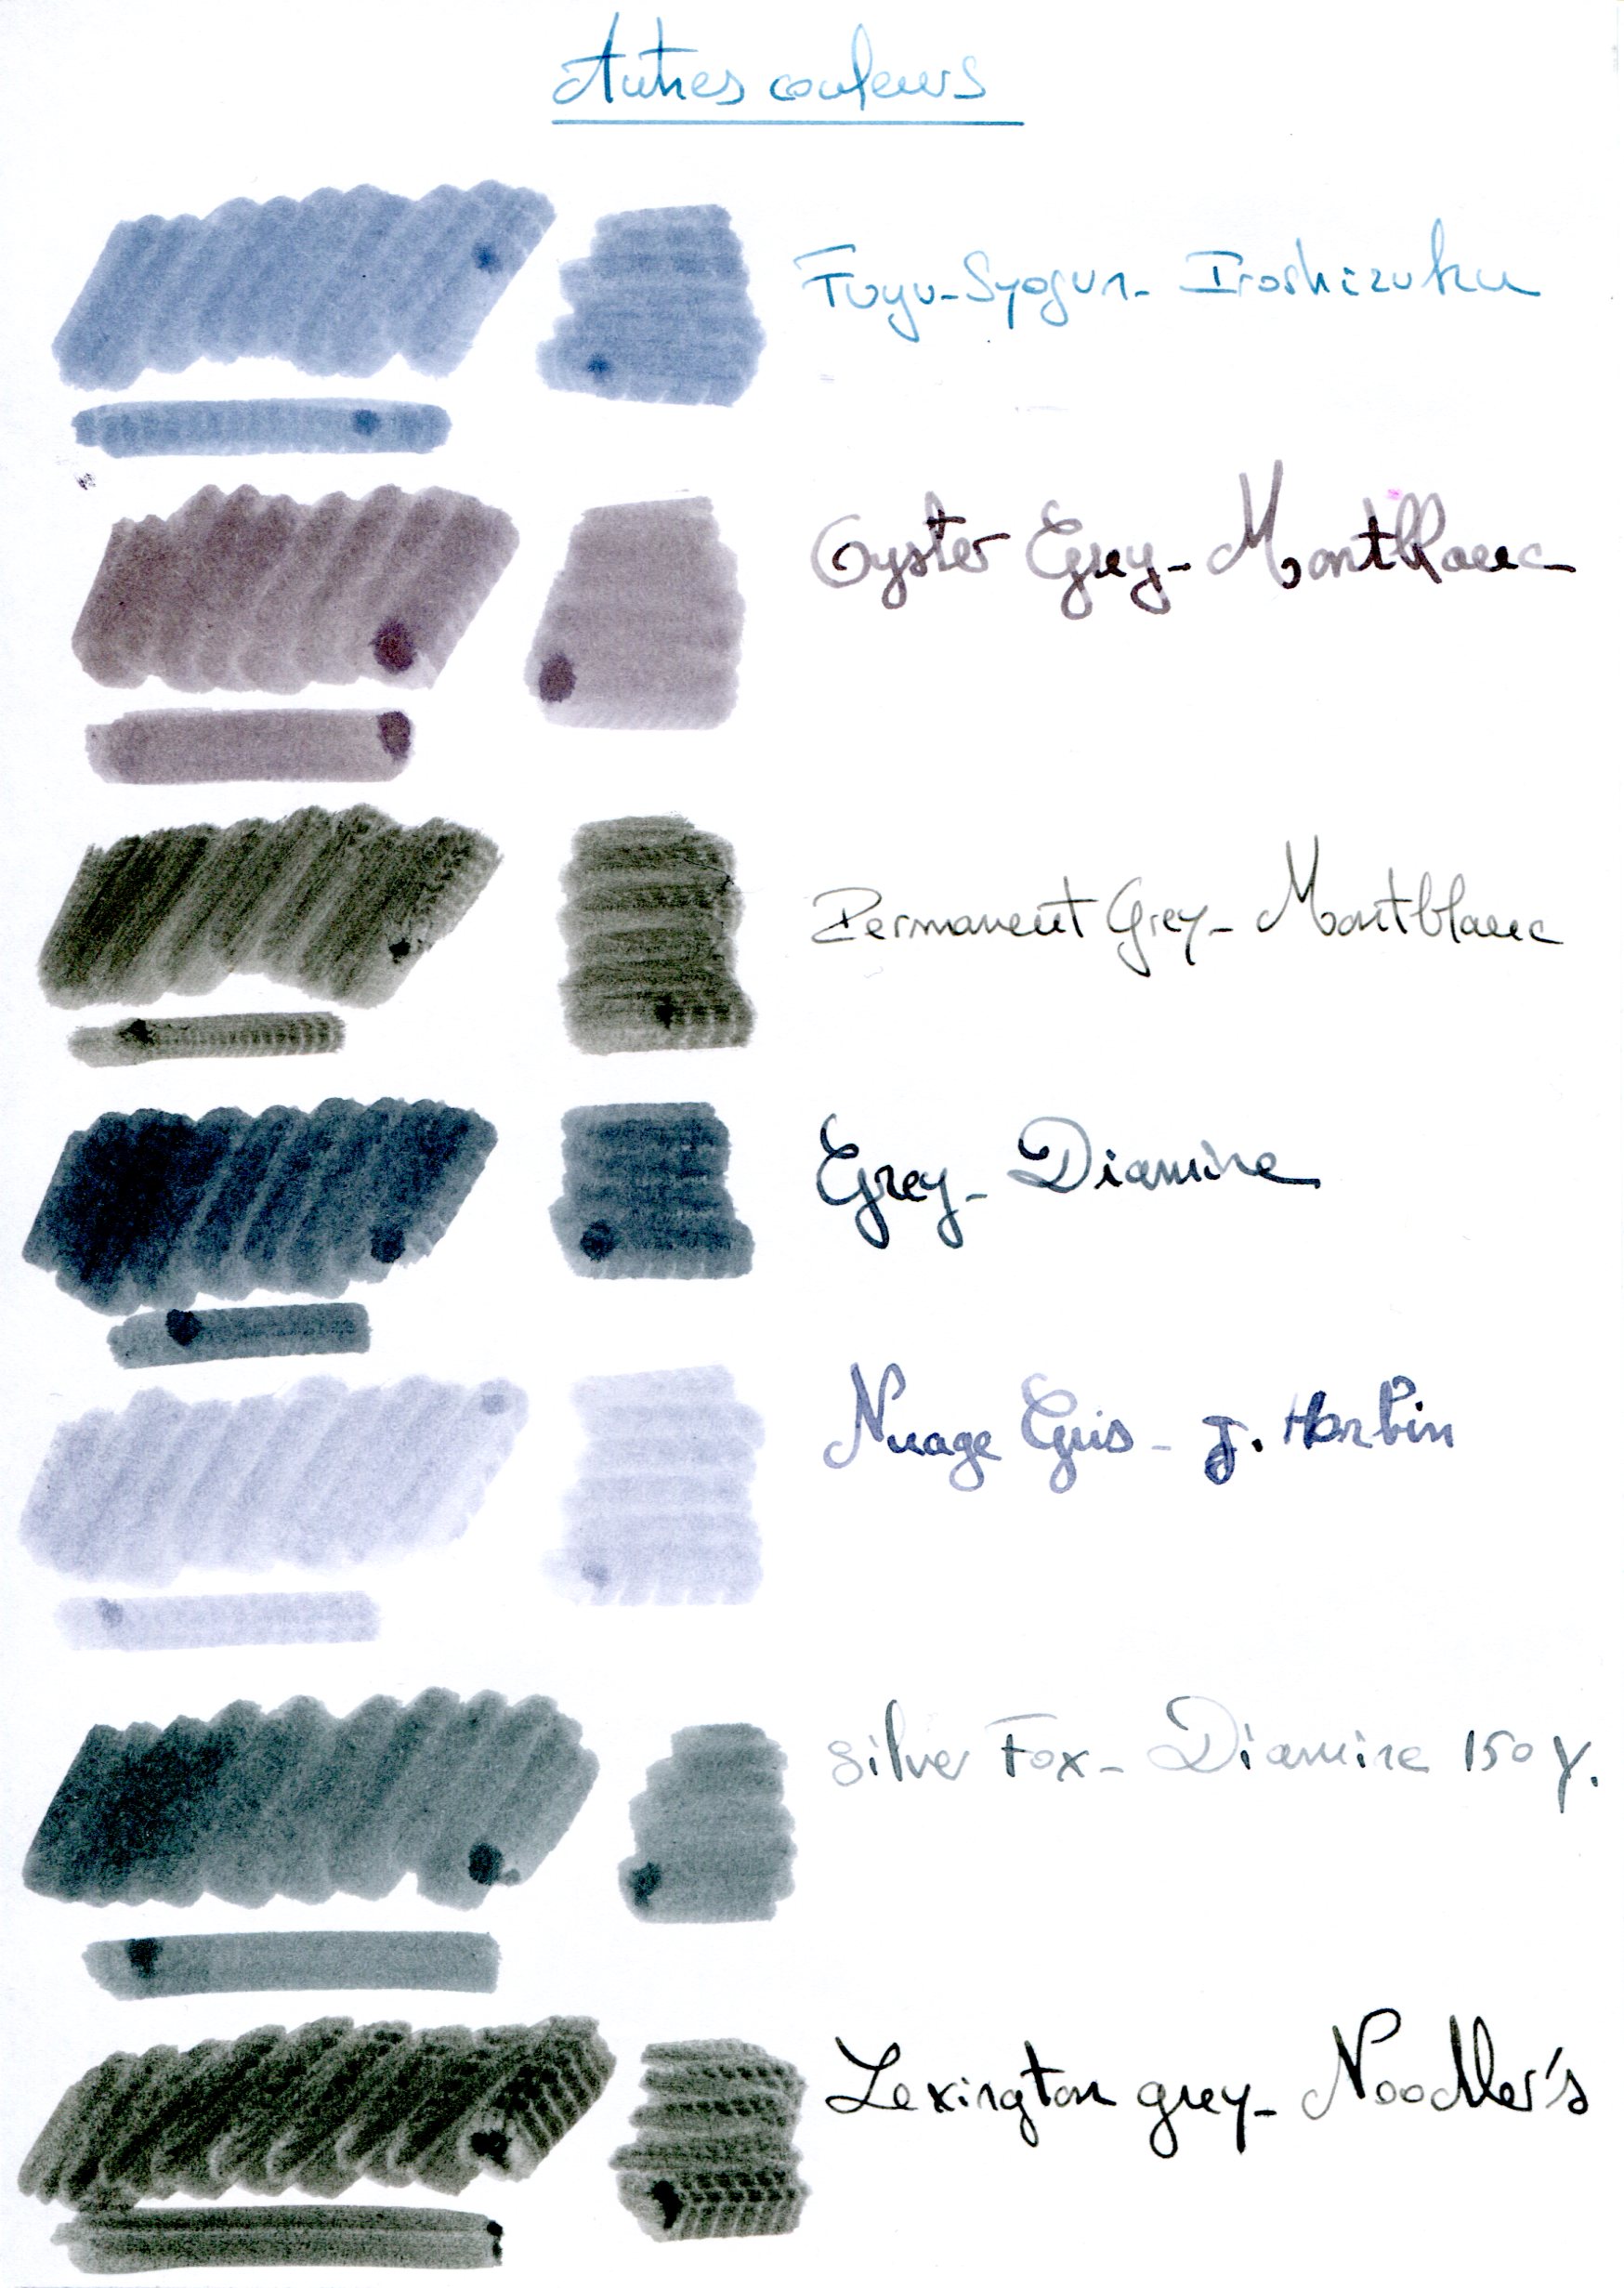 Autres couleurs
Fuyu-Syogun - Iroshizuku
Oyster Grey - Montblanc
Permanent Grey - Montblanc
Grey - Diamine
Nuage Gris - J. Herbin
Silver Fox - Diamine 150 y.
Lexington grey - Noodler's